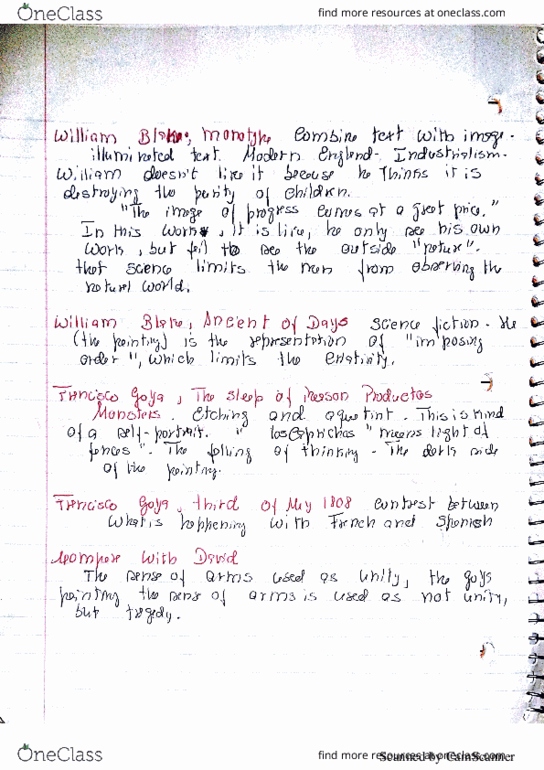 OneClass
find more resources at oneclass.com
William Blake, monotype Combine text with image.
illuminated text. Modern England. Industrialism.
William doesn't like it because he thinks it is
destroying the purity of children.
"The image of progress comes at a great price."
In this work, it is like, he only see his own
work, but fail to see the outside "nature".
that science limits the man from observing the
natural world.
William Blake, Ancent of Days science fiction. He
(the painting) is the representation of "imposing
order", which limits the creativity.
Francisco Goya, The Sleep of Reason Productos
Monsters. Etching and aquatint. This is kind
of a self-portrait. "los Caprichos" means light of
fances". The falling of thinking. The dark side
of the painting.
Francisco Goya, third of May 1808 contrast between
what is happening with French and Spanish
Compare with David
The sense of arms used as unity, the goya
painting the sense of arms is used as not unity,
but tragedy.
OneClass
find more resources at oneclass.com
Scanned by CamScanner